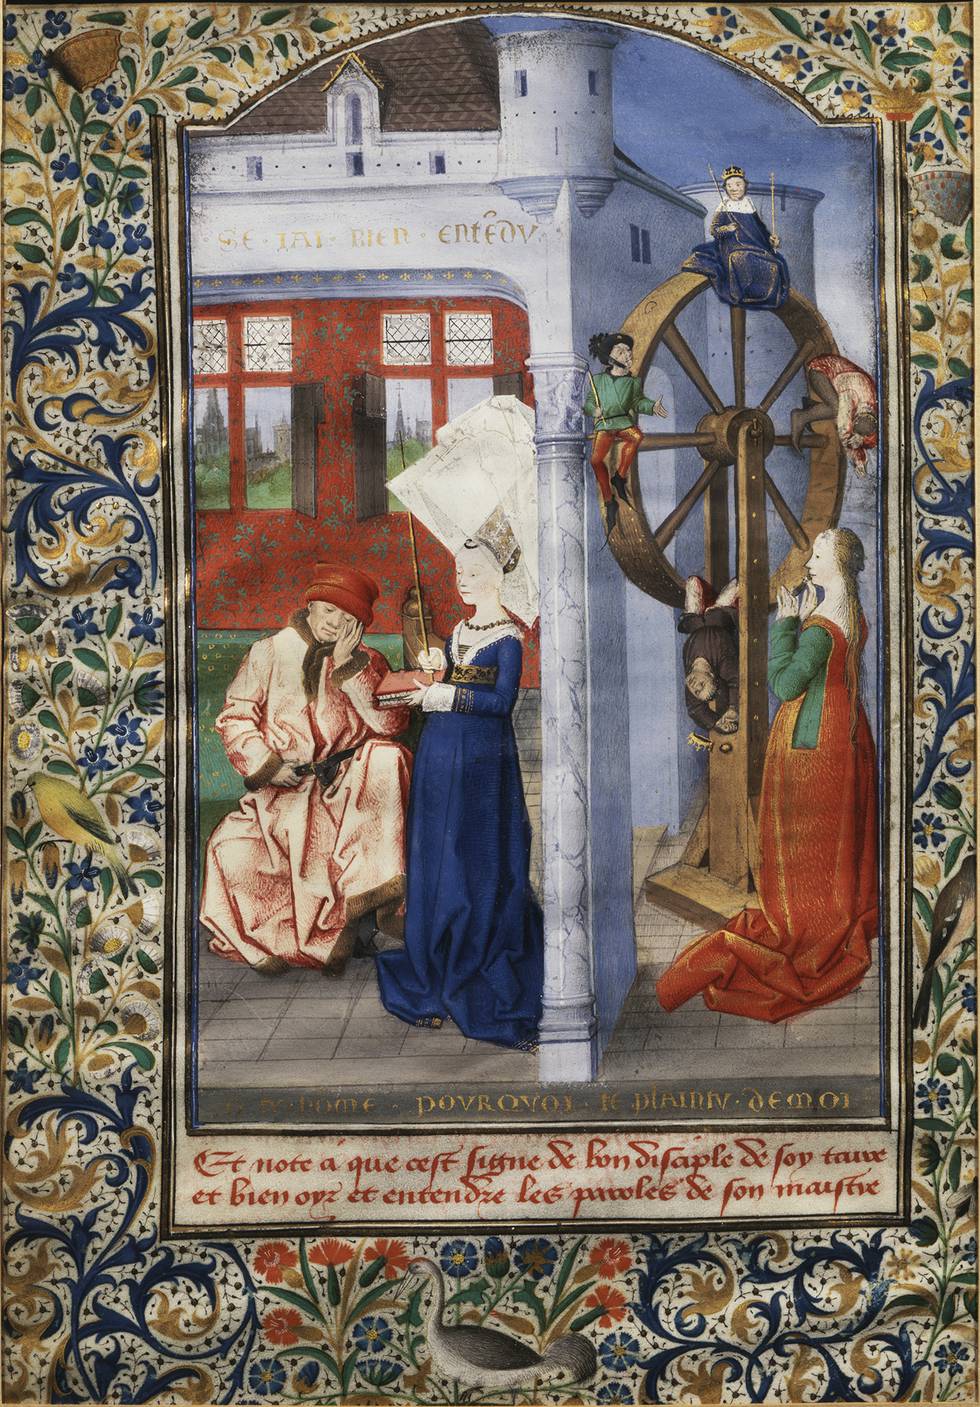 SE · IAI · BIEN · ENTĒDV
HŌME · POVRQVOI · TE PLAINTV · DE MOI
Et note ā que cest signe de bon disciple de soy taire
et bien oyr et entendre les paroles de son maistre